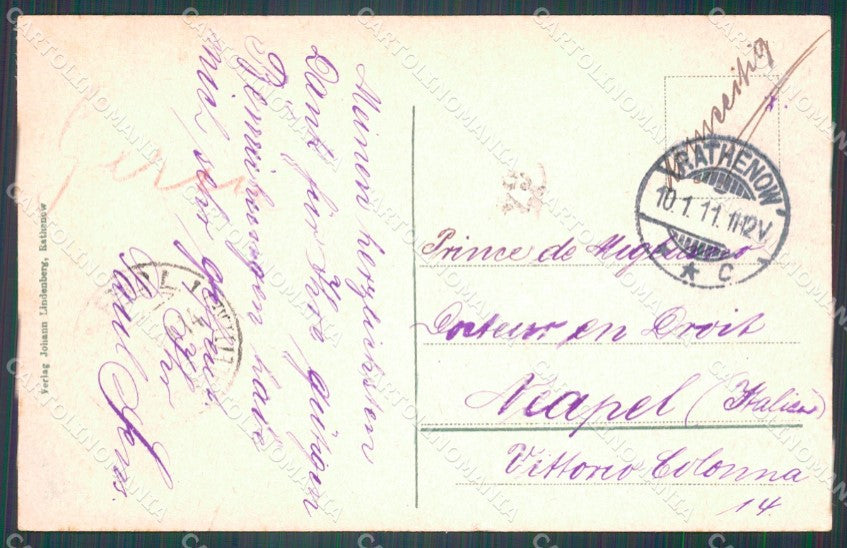 Meinen herzlichsten
Dank für Ihre gütigen
Bemühungen habe
mich sehr gefreut
Ihr
Paul
Verlag Johann Lindenberg, Rathenow
umseitig
RATHENOW
10.1.11.11-12V.
* C
Prince de
Docteur en Droit
Neapel (Italien)
Vittorio Colonna
14.
CARTOLINOMANIA